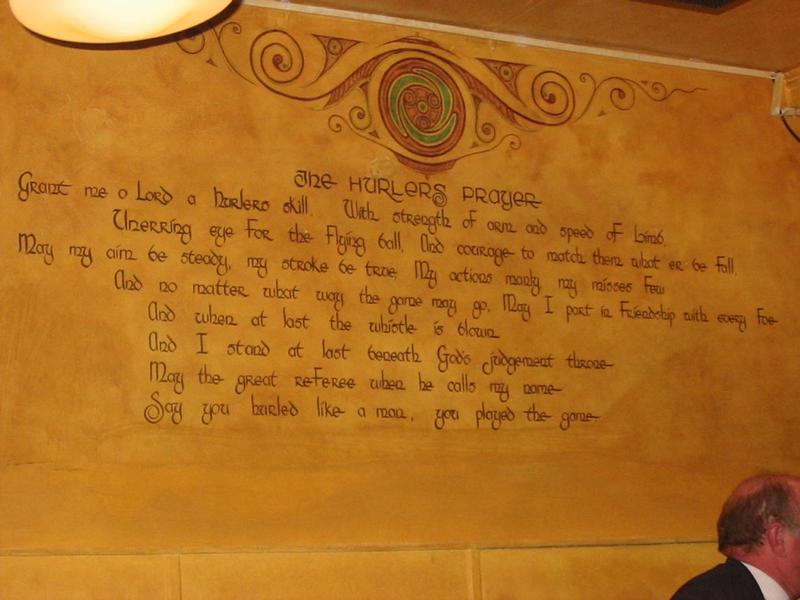 The Hurlers Prayer
Grant me o Lord a hurlers skill, With strength of arm and speed of limb,
Unerring eye for the flying ball, And courage to match them what er be fall.
May my aim be steady, my stroke be true, My actions manly, my misses few
And no matter what way the game may go, May I part in Friendship with every foe
And when at last the whistle is blown
And I stand at last beneath God's judgement throne
May the great referee when he calls my name
Say you hurled like a man, you played the game